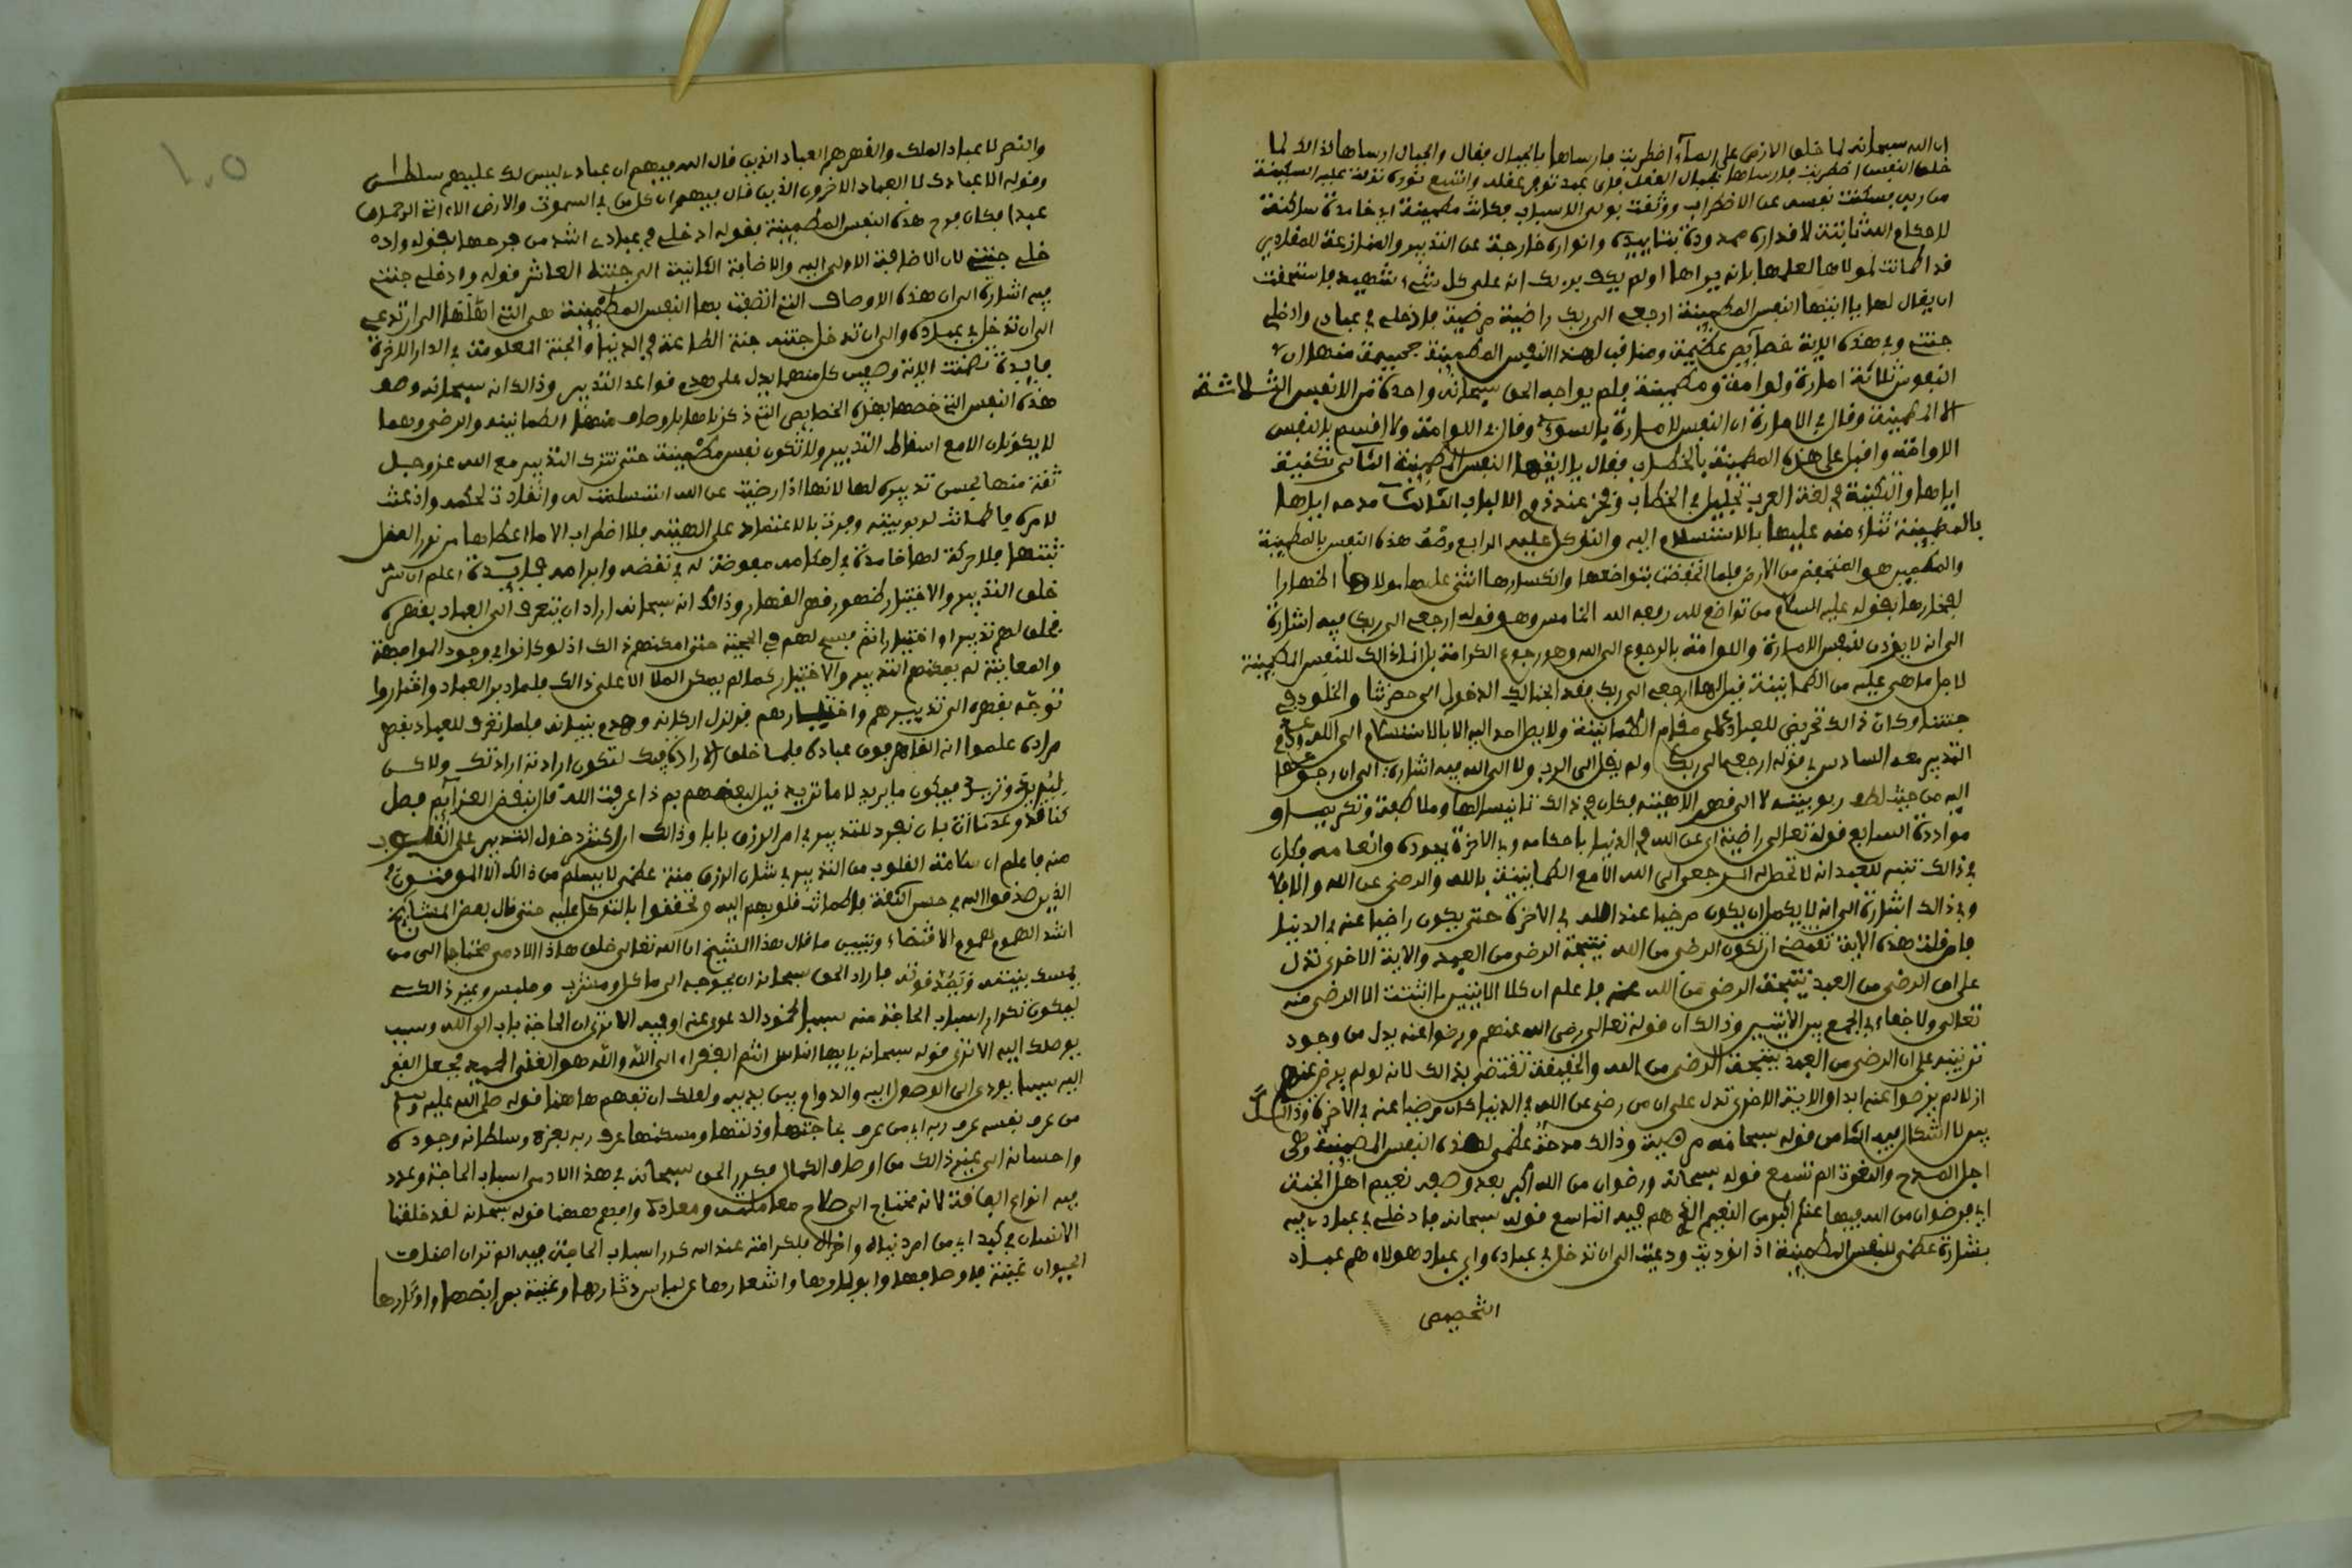 ان الله سبحانه لما خلق الارض على الماء اضطربت فارساها بالجبال فقال والجبال ارساها كذالك لما
خلق النفس اضطربت فارساها بجبال العقل فاى عبد توفر عقله واتسع نوره نزلت عليه السكينة
من ربه فسكنت نفسه عن الاضطراب ووثقت بولى الاسباب فكانت مطمينة اى خامدة ساكنة
لاحكام الله ثابتة لاقداره ممدودة بتاييده وانواره خارجة عن التدبير والمنازعة للمقادير
قد اطمانت لمولاها لعلمها بانه يراها اولم يكف بربك انه على كل شىء شهيد فاستحقت
ان يقال لها ياايتها النفس المطمينة ارجعى الى ربك راضية مرضية فادخلى فى عبادى وادخلى
جنتى وفى هذه الاية خصايص عظيمة ومناقب لهذا النفس المطمينة جسيمة منها ان
النفوس ثلاثة امارة ولوامة ومطمينة فلم يواجه الحق سبحانه واحدة من الانفس الثلاثة
الا المطمينة وقال فى الامارة ان النفس لامارة بالسوء وقال فى اللوامة ولا اقسم بالنفس
اللوامة واقبل على هذه المطمينة بالخطاب فقال ياايتها النفس المطمينة الثانى تكنيته
اياها والتكنية فى لغة العرب تجليل فى الخطاب وفخر عند ذوى الالباب الثالث مدحه اياها
بالمطمينة ثناء منه عليها بالاستسلام اليه والتوكل عليه الرابع وصف هذه النفس بالمطمينة
والمطمين هو المنخفض من الارض فلما انخفضت بتواضعها وانكسارها اثنى عليها مولاها اظهارا
لفخارها بقوله عليه السلام من تواضع لله رفعه الله الخامس وهو قوله ارجعى الى ربك فيه اشارة
الى انه لا يوذن للنفس الامارة واللوامة بالرجوع الى الله وهو رجوع الكرامة بل انما ذالك للنفس المطمينة
لاجل ما هى عليه من الطمانينة قيل لها ارجعى الى ربك فقد ابحنالك الدخول الى حضرتنا والخلود فى
جنتنا وكان ذالك تحريض للعباد على مقام الطمانينة ولا يصل احد اليه الا بالاستسلام الى الله وعدم
التدبير معه السادس فى قوله ارجعى الى ربك ولم يقل الى الرب ولا الى الله فيه اشارة الى ان رجوعها
اليه من حيث لطف ربوبيته لا الى قهر الاهيته فكان فى ذالك تانيسا لها وملاطفة وتكريما و
مواددة السابع قوله تعالى راضية اى عن الله فى الدنيا باحكامه وفى الاخرة بجوده وانعامه فكان
فى ذالك تنبيه للعبد انه لا تحصل له الرجعى الى الله الا مع الطمانينة بالله والرضى عن الله والا فلا
وفى ذالك اشارة الى انه لا يكمل ان يكون مرضيا عند الله فى الاخرة حتى يكون راضيا عنه فى الدنيا
فان قلت هذه الاية تقتضى ان تكون الرضى من الله نتيجة الرضى من العبد والاية الاخرى تدل
على ان الرضى من العبد نتيجة الرضى من الله فاعلم ان كلا الايتين اثبتت الرضى منه
تعالى ولا خفاء فى الجمع بين الايتين وذالك ان قوله تعالى رضى الله عنهم ورضوا عنه يدل من وجود
ترتيبه على ان الرضى من العبد نتيجة الرضى من الله والحقيقة تقتضى بذالك لانه لو لم يرض عنهم
اولا لم يرضوا عنه ابدا والاية الاخرى تدل على ان من رضى عن الله فى الدنيا كان مرضيا عنه فى الاخرة وذالك
بين لا اشكال فيه الثامن قوله سبحانه مرضية وذالك مدحة عظمى لهذه النفس المطمينة وهى
اجل المدح والنعوت الم تسمع قوله سبحانه ورضوان من الله اكبر بعد وصف نعيم اهل الجنة
اى فرضوان من الله فيها عنهم اكبر من النعيم الذى هم فيه التاسع قوله سبحانه فادخلى فى عبادى فيه
بشارة عظمى للنفس المطمينة اذ انوديت ودعيت الى ان تدخل فى عباده واى عباد هولاء هم عباد
التخصيص
١٠٥
والنصر لا عباد الملك والقهر هم العباد الذين قال الله فيهم ان عبادى ليس لك عليهم سلطان
وقوله الا عبادك لا العباد الاخرون الذين قال فيهم ان كل من فى السموت والارض الا اتى الرحمان
عبدا فكان فرح هذه النفس المطمينة بقوله ادخلى فى عبادى اشد من فرحها بقوله واد
خلى جنتى لان الاضافة الاولى اليه والاضافة الثانية الى جنته العاشر قوله وادخلى جنتى
فيه اشارة الى ان هذه الاوصاف التى اتصفت بها النفس المطمينة هى التى اهلتها الى ان تدعى
الى ان تدخل فى عباده والى ان تدخل جنته جنة الطاعة فى الدنيا والجنة المعلومة فى الدار الاخرة
فايدة تضمنت الاية وصفين كل منهما يدل على هدم قواعد التدبير وذالك انه سبحانه وصف
هذه النفس التى خصها بهذه الخصايص التى ذكرناها باوصاف منها الطمانينة والرضى وهما
لا يكونان الا مع اسقاط التدبير ولا تكون نفس مطمينة حتى تترك التدبير مع الله عز وجل
ثقة منها بحسن تدبيره لها لانها اذا رضيت عن الله استسلمت له وانقادت لحكمه واذعنت
لامره فاطمانت لربوبيته وقرت بالاعتماد على الهيته فلا اضطراب الا ما اعطاها من نور العقل
ثبتها فلا حركة لها خامدة فى احكامه مفوضة له فى نقضه وابرامه فايدة اعلم ان سر
خلق التدبير والاختيار ظهور قهر القهار وذالك انه سبحانه اراد ان يتعرف الى العباد بقهره
فخلق لهم تدبيرا واختيارا ثم فسح لهم فى الحجبة حتى امكنهم ذالك اذ لو كانوا فى وجود المواجهة
والمعاينة لم يمكنهم التدبير والاختيار كما لم يمكن الملا الاعلى ذالك فلما دبر العباد واختاروا
توجه بقهره الى تدبيرهم واختيارهم فزلزل اركانه وهدم بنيانه فلما تعرف للعباد بقهر
مراده علموا انه القاهر فوق عباده فلما خلق الارادة فيك لتكون ارادته ارادتك ولاكن
كنا قد وعدنا ان نفرد للتدبير فى امر الرزق بابا وذالك ان اكثر دخول التدبير على القلوب
منه فاعلم ان سلامة القلوب من التدبير فى شان الرزق منة عظمى لا يسلم من ذالك الا الموفقون
الذين صدقوا الله فى حسن الثقة فاطمانت قلوبهم اليه وتحققوا بالتوكل عليه حتى قال بعض المشايخ
اشد الهموم هموم الاقتضاء وتبيين ما قال هذا الشيخ ان الله تعالى خلق هاذا الادمى محتاجا الى من
يمسك بنيته ويمد قوته فاراد الحق سبحانه ان يحوجه الى ماكل ومشرب وملبس وغير ذالك
ليكون تكرار اسباب الحاجة منه سببا لخمود الدعوى عنه الا ترى ان الحاجة باب الى الله وسبب
يوصلك اليه الا ترى قوله سبحانه يايها الناس انتم الفقراء الى الله والله هو الغنى الحميد فجعل الفقر
اليه سببا يودى الى الوصول اليه والدوام بين يديه ولعلك ان تفهم هاهنا قوله صلى الله عليه وسلم
من عرف نفسه عرف ربه اى من عرف بحاجتها وذلتها ومسكنها عرف ربه بعزه وسلطانه وجوده
واحسانه الى غير ذالك من اوصاف الكمال فكرر الحق سبحانه فى هذا الادمى اسباب الحاجة وعدد
فيه انواع الفاقة لانه محتاج الى صلاح معاشه ومعاده وافهم ههنا قوله سبحانه لقد خلقنا
الانسان فى كبد اى من امر دنياه واخراه فلكرامته عند الله كرر اسباب الحاجة فيه الم تر ان اصناف
الحيوان غنية باوصافها واوبارها واشعارها عن لباس دثارها وغنية بمرابضها واوكارها